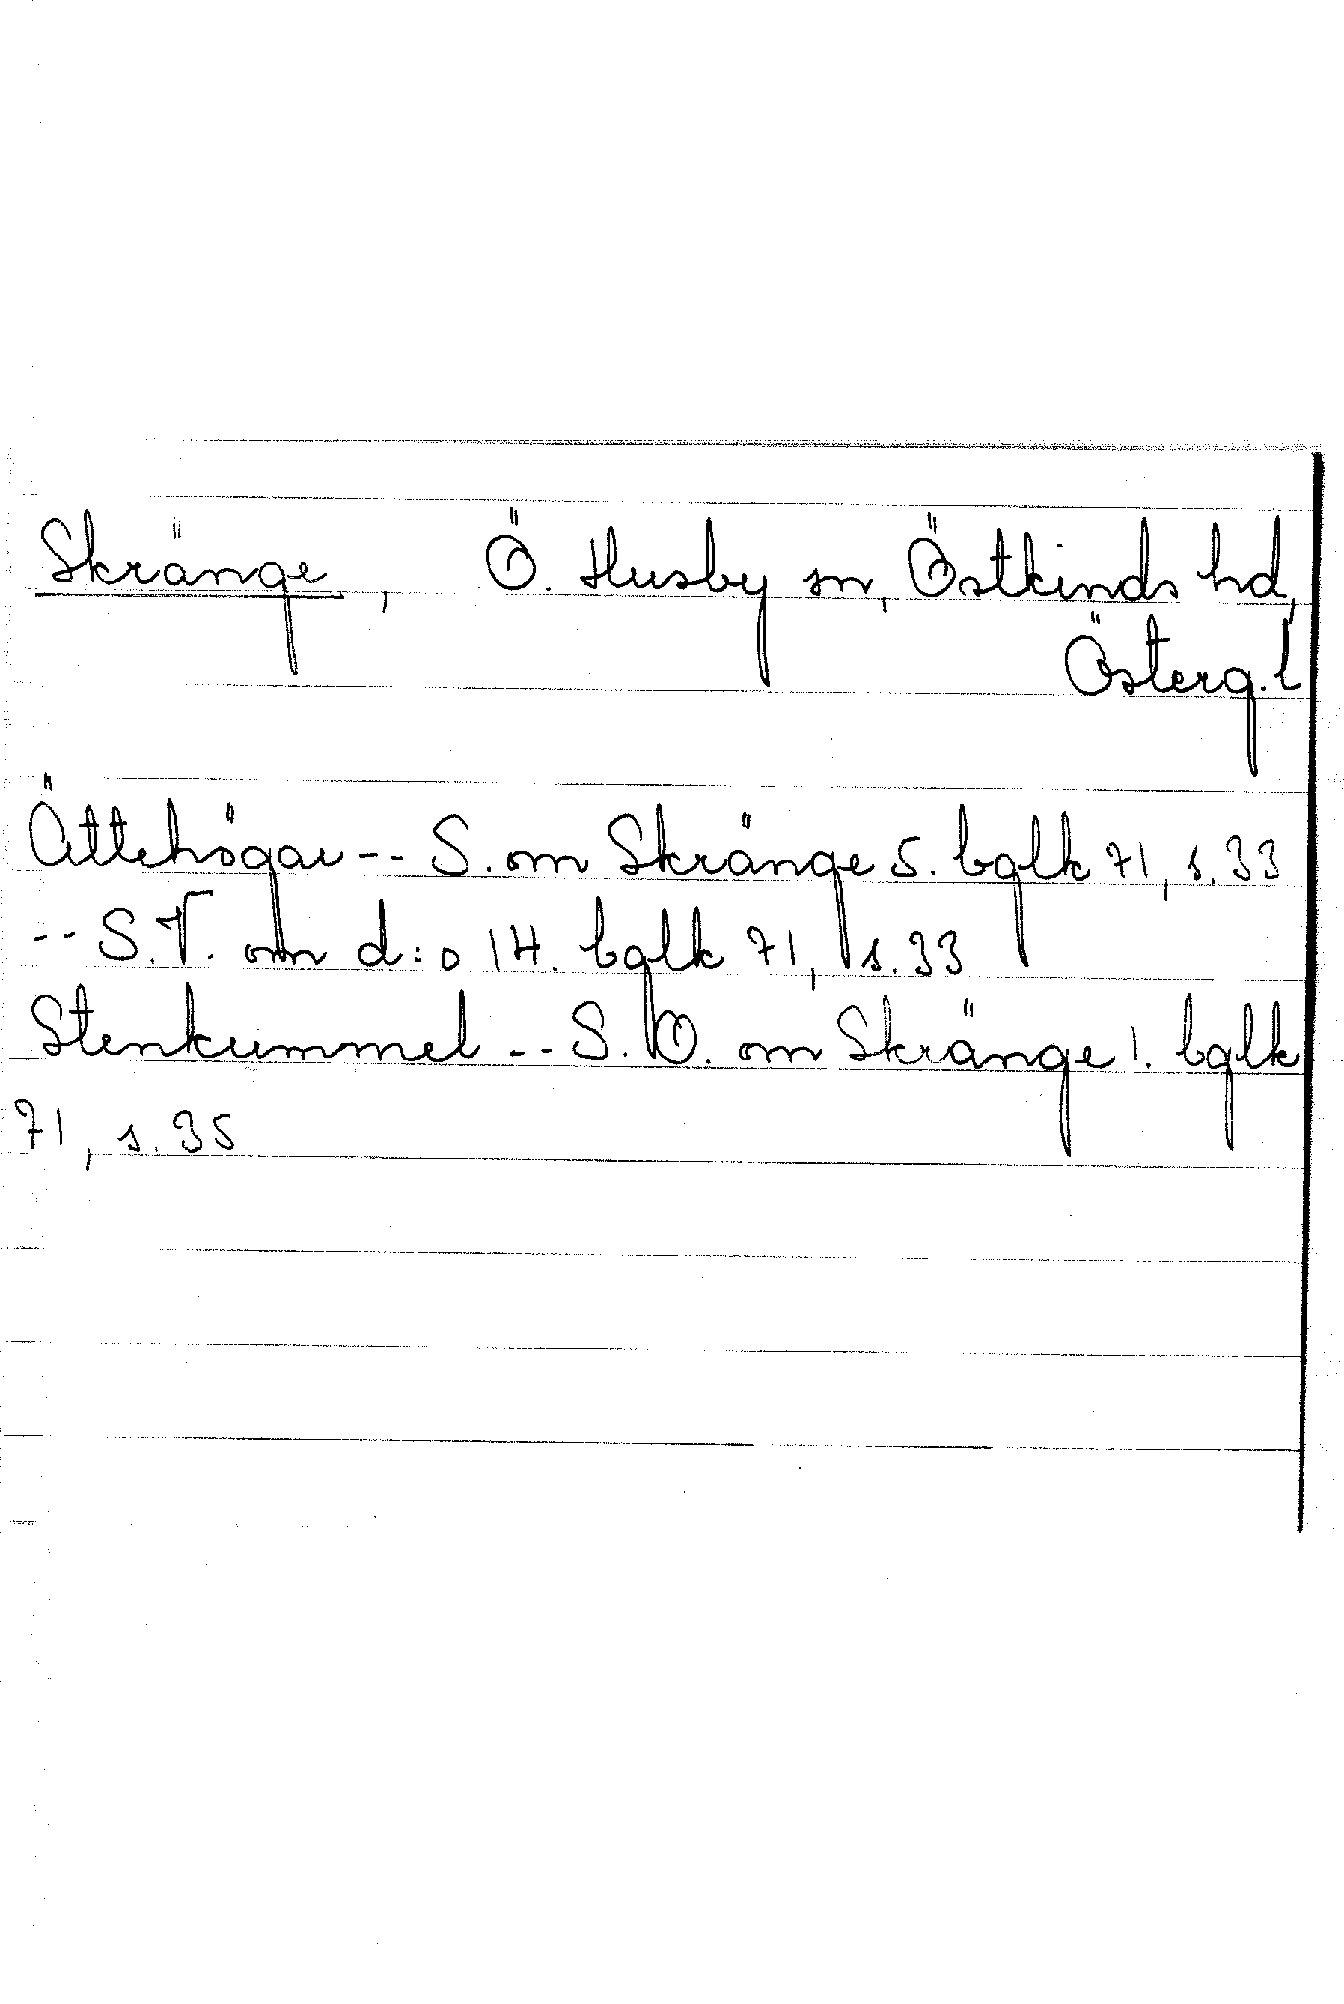 Skränge, Ö. Husby sn, Östkinds hd,
Österg. l
Ättehögar -- S. om Skränge 5. bglk 71, s. 33
-- S.V. om d:o 14. bglk 71, s. 33
Stenkummel -- S.O. om Skränge 1. bglk
71, s. 35